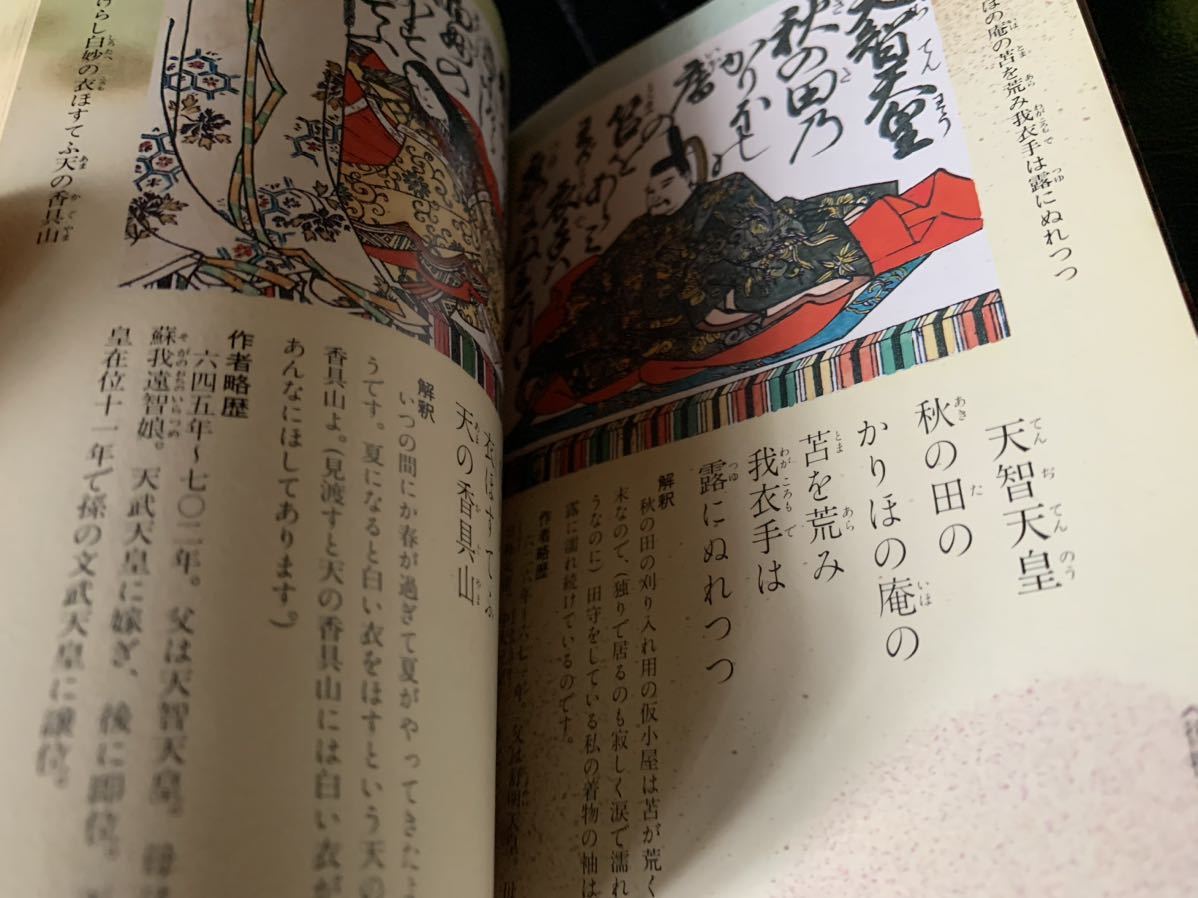 ほの庵の苫を荒み我衣手は露にぬれつつ
天智天皇
秋の田乃
かりほの
庵の
苫を
あらみ
天智天皇
秋の田の
かりほの庵の
苫を荒み
我衣手は
露にぬれつつ
解釈
秋の田の刈り入れ用の仮小屋は苫が荒く
末なので、(独りで居るのも寂しく涙で濡れ
うなのに)田守をしている私の着物の袖は
露に濡れ続けているのです。
作者略歴
父は舒明天皇。
けらし白妙の衣ほすてふ天の香具山
衣ほすてふ
天の香具山
解釈
いつの間にか春が過ぎて夏がやってきたよ
うです。夏になると白い衣をほすという天の
香具山よ。(見渡すと天の香具山には白い衣が
あんなにほしてあります。)
作者略歴
六四五年～七〇二年。父は天智天皇。
蘇我遠智娘。天武天皇に嫁ぎ、後に即位。
皇在位十一年で孫の文武天皇に譲位。